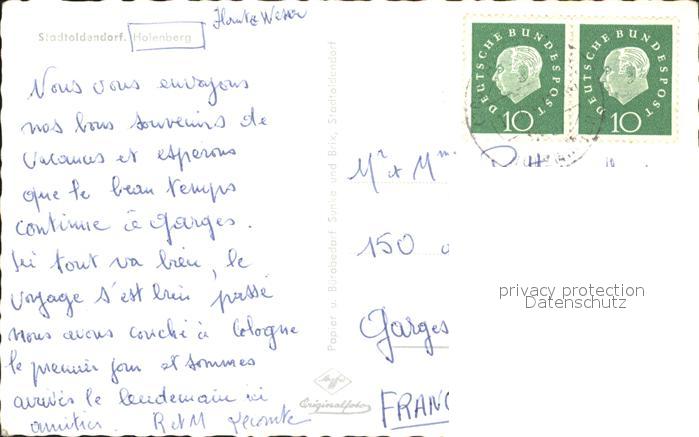 Stadtoldendorf. Holenberg
Nous vous envoyons
nos bons souvenirs de
vacances et espérons
que le beau temps
continue à Garges.
Ici tout va bien, le
voyage s'est bien passé
nous avons couché à Cologne
le premier jour et sommes
arrivés le lendemain ici
amitiés. R et M Lecomte
Papier u. Bürobedarf und Brix, Stadtoldendorf
Agfa
Originalfoto
DEUTSCHE BUNDESPOST
10
DEUTSCHE BUNDESPOST
10
Mr et Mme
150
Garges
FRANC
privacy protection
Datenschutz